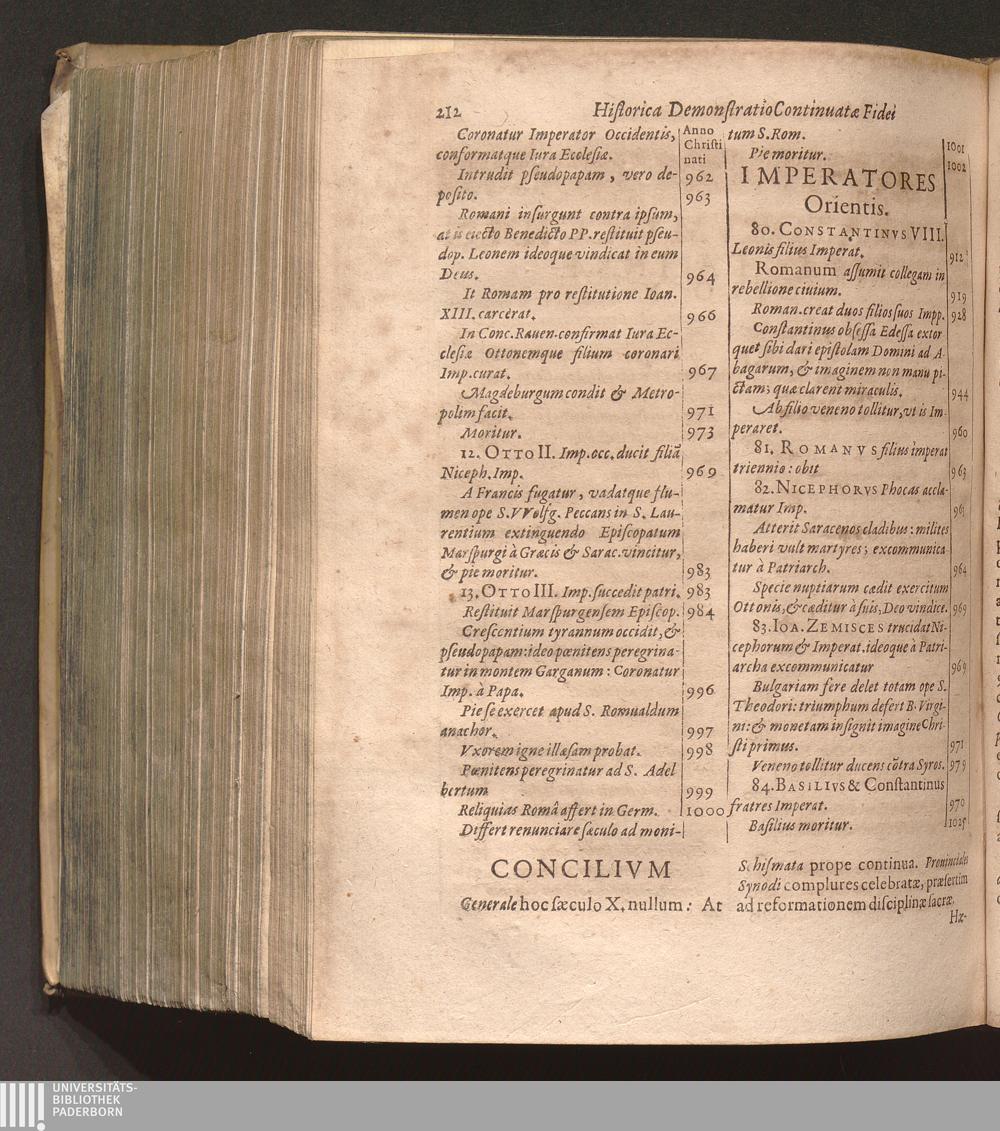 212 Historica Demonstratio Continuatæ Fidei
Anno
Christi
nati
Coronatur Imperator Occidentis,
conformatque Iura Ecclesiæ. 962
Intrudit pseudopapam, vero de-
posito. 963
Romani insurgunt contra ipsum,
at is eiecto Benedicto PP. restituit pseu-
dop. Leonem ideoque vindicat in eum
Deus. 964
It Romam pro restitutione Ioan.
XIII. carcerat. 966
In Conc. Rauen. confirmat Iura Ec-
clesiæ Ottonemque filium coronari
Imp. curat. 967
Magdeburgum condit & Metro-
polim facit. 971
Moritur. 973
12. OTTO II. Imp. occ. ducit filiā
Niceph. Imp. 969
A Francis fugatur, vadatque flu-
men ope S. VVolfg. Peccans in S. Lau-
rentium extinguendo Episcopatum
Marspurgi à Græcis & Sarac. vincitur,
& pie moritur. 983
13. OTTO III. Imp. succedit patri. 983
Restituit Marspurgensem Episcop. 984
Crescentium tyrannum occidit, &
pseudopapam: ideo pœnitens peregrina-
tur in montem Garganum: Coronatur
Imp. à Papa. 996
Pie se exercet apud S. Romualdum
anachor. 997
Vxorem igne illæsam probat. 998
Pœnitens peregrinatur ad S. Adel
bertum 999
Reliquias Româ affert in Germ. 1000
Differt renunciare sæculo ad moni-
tum S. Rom. 1001
Pie moritur. 1002
IMPERATORES
Orientis.
80. CONSTANTINVS VIII.
Leonis filius Imperat. 912
Romanum assumit collegam in
rebellione ciuium. 919
Roman. creat duos filios suos Impp. 928
Constantinus obsessa Edessa extor
quet sibi dari epistolam Domini ad A-
bagarum, & imaginem non manu pi-
ctam; quæ clarent miraculis. 944
Ab filio veneno tollitur, vt is Im-
peraret. 960
81. ROMANVS filius imperat
triennio: obit 963
82. NICEPHORVS Phocas accla-
matur Imp. 963
Atterit Saracenos cladibus: milites
haberi vult martyres; excommunica
tur à Patriarch. 964
Specie nuptiarum cædit exercitum
Ottonis, & cæditur à suis, Deo vindice. 969
83. IOA. ZEMISCES trucidat Ni-
cephorum & Imperat. ideoque à Patri-
archa excommunicatur 969
Bulgariam fere delet totam ope S.
Theodori: triumphum defert B. Virgi-
ni: & monetam insignit imagine Chri-
sti primus. 971
Veneno tollitur ducens cōtra Syros. 979
84. BASILIVS & Constantinus
fratres Imperat. 970
Basilius moritur. 1025
CONCILIVM
Generale hoc sæculo X. nullum: At
Schismata prope continua. Prouinciales
Synodi complures celebratæ, præsertim
ad reformationem disciplinæ sacræ.
Hæ-
UNIVERSITÄTS-
BIBLIOTHEK
PADERBORN